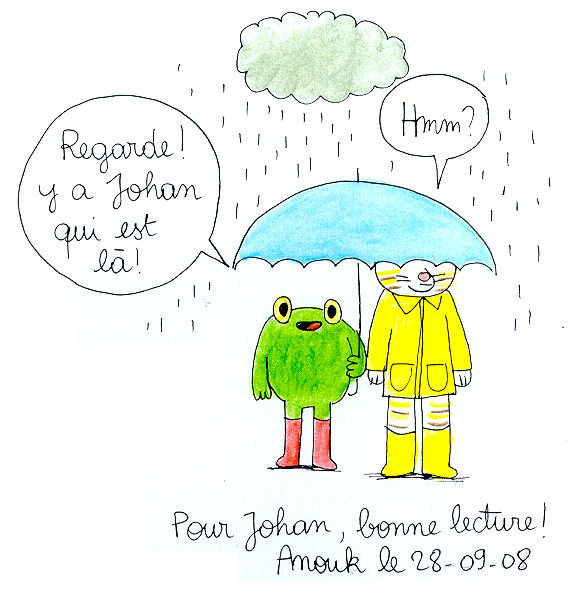 Regarde!
y a Johan
qui est
là!
Hmm?
Pour Johan, bonne lecture!
Anouk le 28-09-08